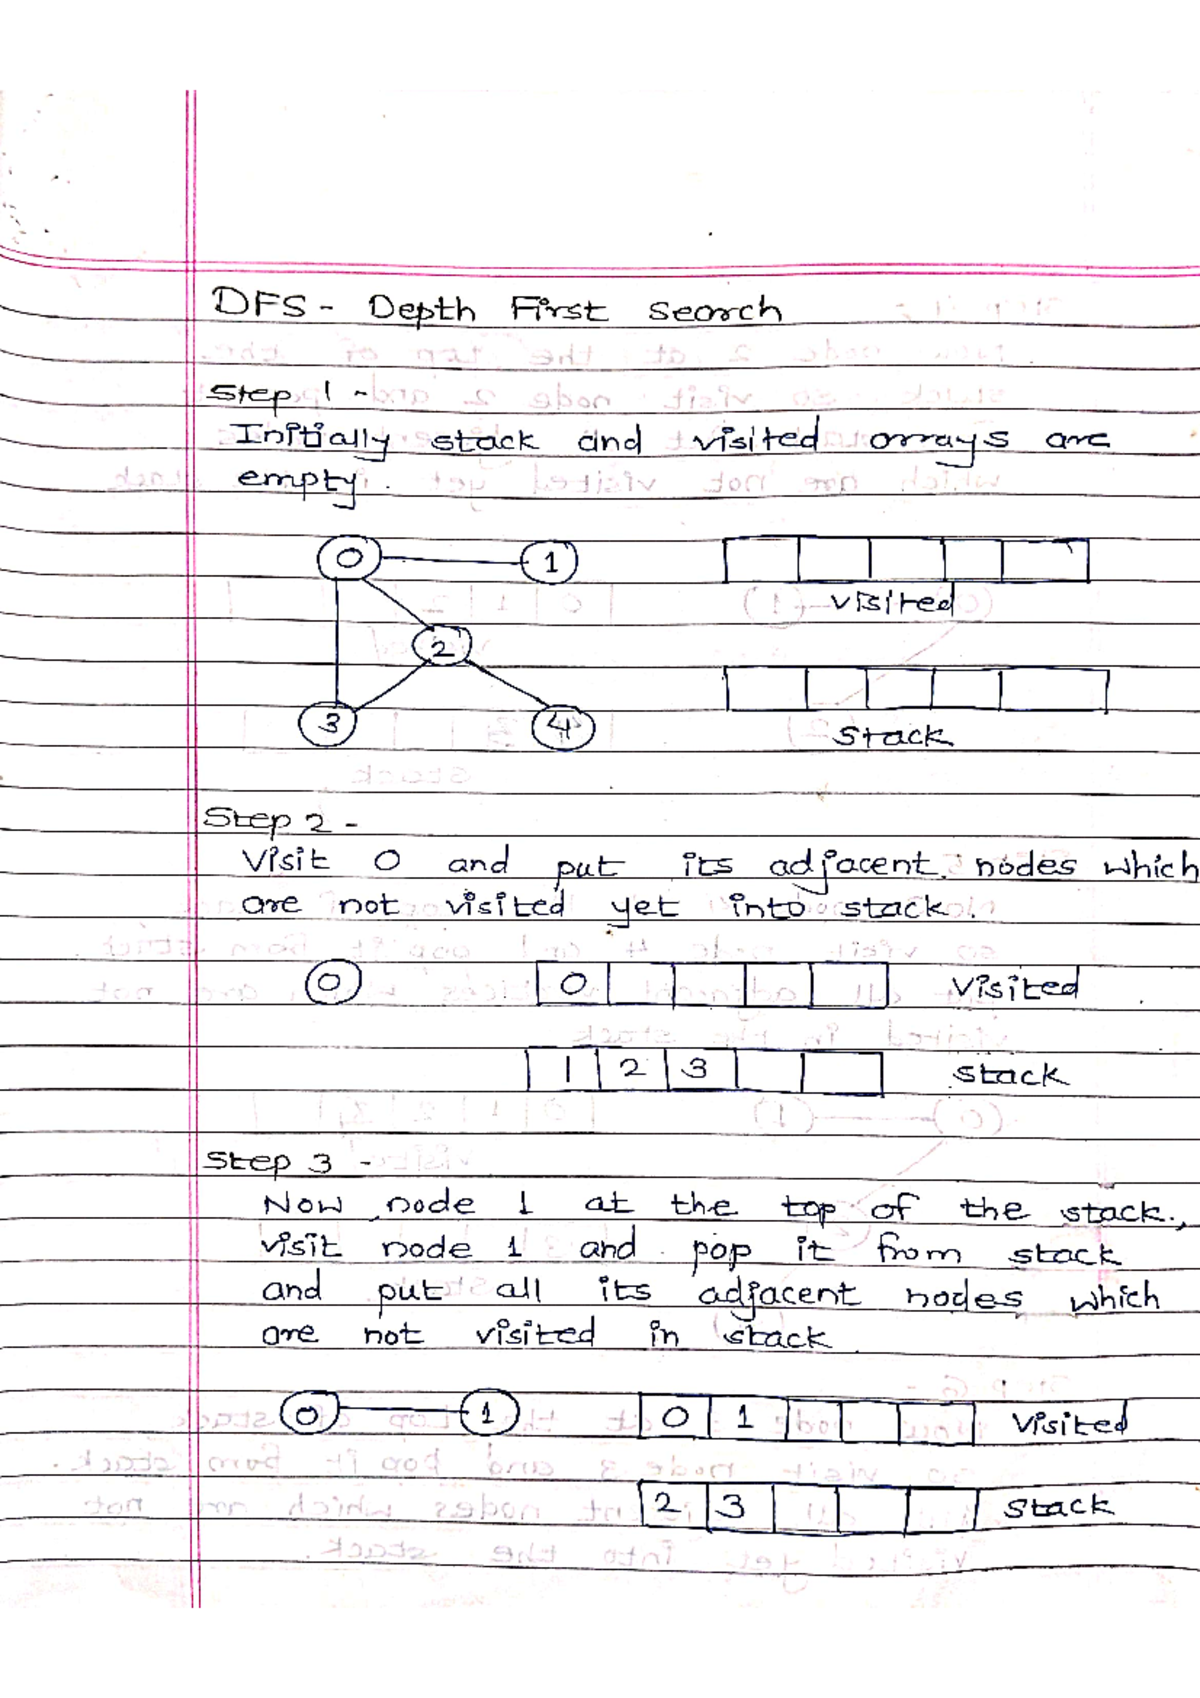 DFS - Depth First Search
Step 1 -
Initially stack and visited arrays are
empty.
0 1
visited
2
3 4
Stack
Step 2 -
Visit 0 and put its adjacent nodes which
are not visited yet into stack.
0 0 Visited
1 2 3 stack
Step 3 -
Now node 1 at the top of the stack.,
visit node 1 and pop it from stack
and put all its adjacent nodes which
are not visited in stack
0 1 0 1 Visited
2 3 Stack